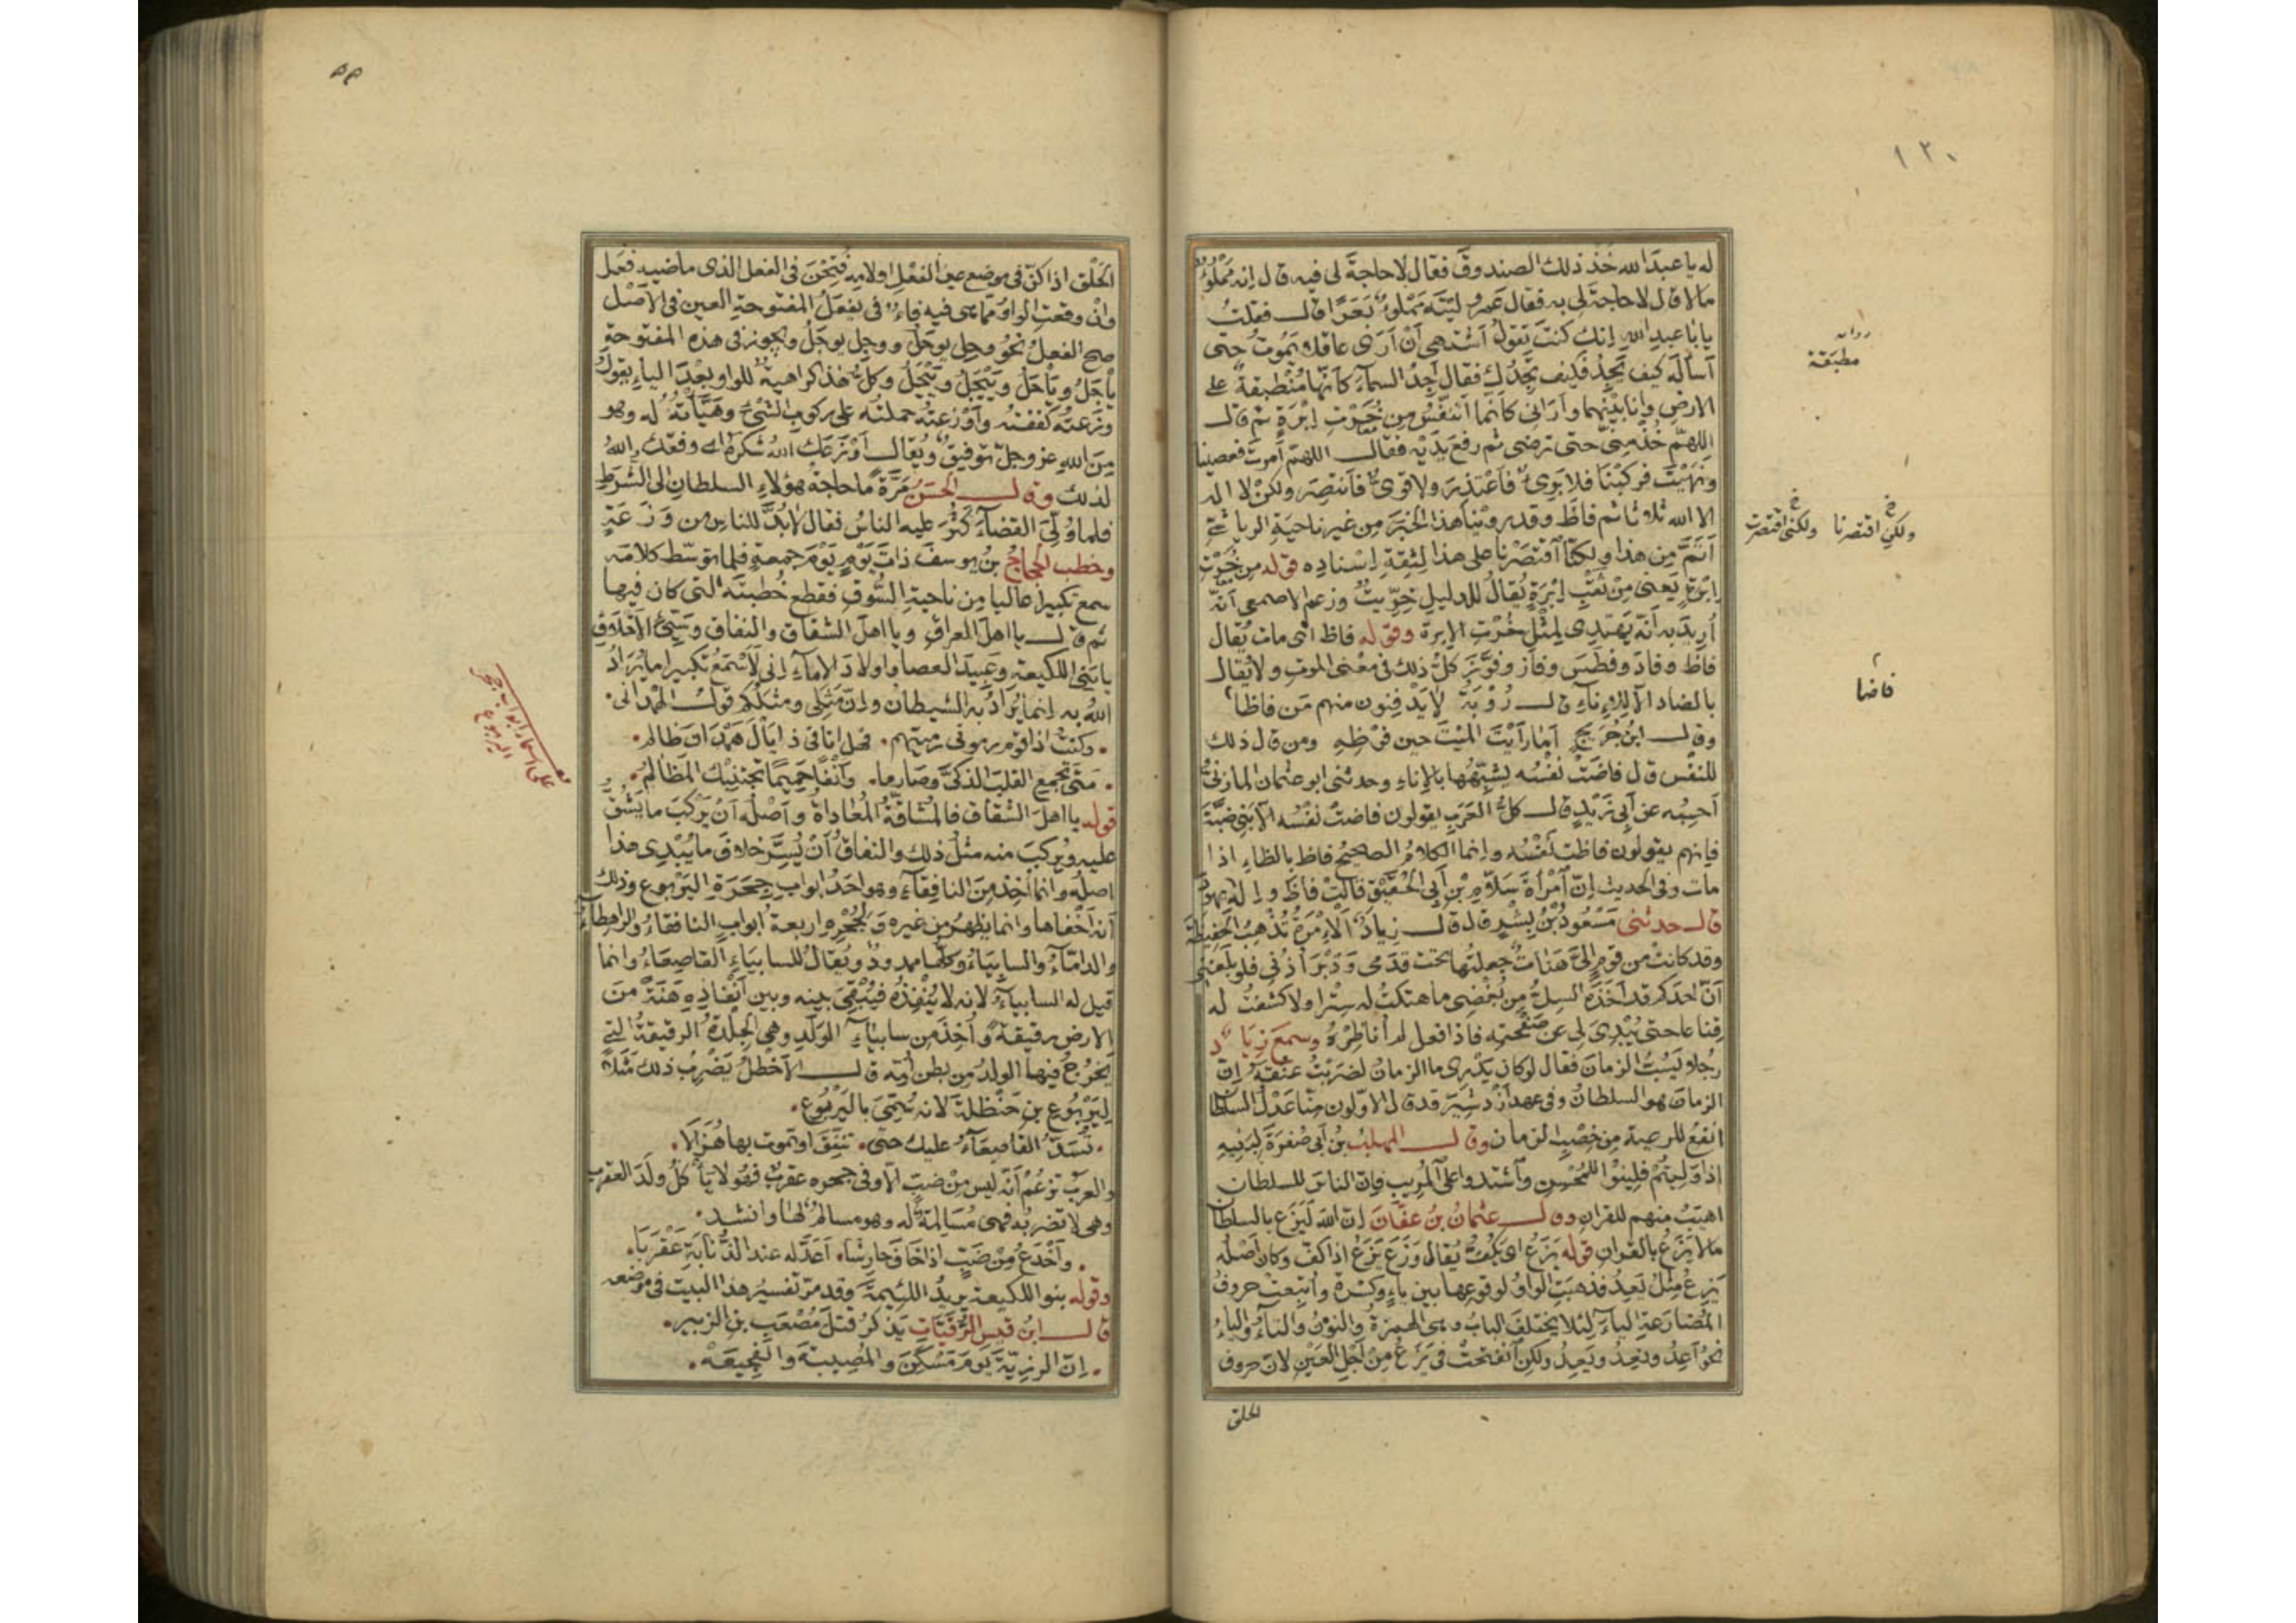 ١٢٠
له يا عبدَ الله خُذ ذلك الصندوقَ فقال لا حاجةَ لى فيه قال إنه مَمْلُوءٌ
مالا قال لا حاجةَ لى به فقال عَمرو ليتَه مَمْلُوءٌ بَعَرًا قال فقلتُ
يا با عبدِ الله إنك كنتَ تقولُ أشتهى أنْ أرَى عاقلا يَموتُ حتى
أسألَه كيف يَجِدُ فكيف تَجِدُك فقال أجِدُ السماءَ كأنّها مُنْطبقةٌ على
الارضِ وانا بَيْنَهما وأَرَانى كأنما أتنفّسُ مِن خُرْتِ إبْرَةٍ ثم قال
اللهمّ خُذْ مِنّى حتى ترضى ثم رفعَ يَدَيْه فقال اللهمّ أمرتَ فعصينا
ونَهَيْتَ فركبْنَا فلا بَرِىءٌ فأعْتذِرَ ولا قوىٌّ فأنتصِرَ ولكنْ لا اله
الا الله ثلاثا ثم فاظَ وقد روينا هذا الخبرَ مِن غيرِ ناحيةِ الرياشىّ
أتَمَّ مِن هذا ولكنّا اقتصَرْنا على هذا لِثِقةِ إسنادِه قوله من خُرْتِ
إبْرَةٍ يَعنى مِنْ ثَقْبِ إبْرَةٍ يُقالُ للدليلِ خِرّيتٌ وزعم الاصمعى أنّه
أُريدَ به أنّه يَهتدِى لِمثْلِ خُرْتِ الإبرة وقوله فاظ اى مات يُقال
فاظَ وفادَ وفطَسَ وفازَ وفوَّزَ كلُّ ذلك فى معْنى الموتِ ولا يُقال
بالضاد الا للإناءِ قال رُؤبَةُ لا يَدْفِنون منهم مَن فاظا
وقال ابنُ جُرَيجٍ أمَا رأيتَ الميّتَ حين فَوْظِهِ ومن قال ذلك
للنفْسِ قال فاضَتْ نفْسُه يشبّهُها بالإناءِ وحدثنى ابو عثمان المازنىُّ
أحسِبُه عن أبى زَيْدٍ قال كلُّ العَرَبِ يقولون فاضتْ نفْسُه الا بَنِى ضبَّةَ
فإنهم يقولون فاظتْ نفْسُه وإنما الكلامُ الصحيحُ فاظ بالظاءِ اذا
مات وفى الحديث إنّ امْرأةَ سَلّامِ بْنِ أبى الحُقَيْقِ قالتْ فاظَ وإلهِ يهودَ
قال حدثنى مَسْعُودُ بْنُ بِشْرٍ قال قال زيادٌ الإمْرَةُ تُذهِبُ الحَفِيظةَ
وقد كانتْ من قومٍ إلىَّ هَنَاتٌ جعلتُها تحتَ قدَمى ودَبْرَ أُذُنى فلو بلَغَنى
أنَّ أحدَكم قد أخَذَه السِلُّ مِن بُغْضِى ما هتكتُ له سِتْرا ولا كشفتُ له
قِنَاعا حتى يُبْدِىَ لى عن صَفْحتِه فاذا فعل لم أُناظِرْهُ وسمعَ زِيَادٌ
رجُلا يَسُبُّ الزمانَ فقال لو كان يَدْرِى ما الزمانُ لضَربْتُ عنُقَهُ إنّ
الزمانَ هو السلطانُ وفى عهدِ أزْدَشِيَرَ قد قال الاوّلون مِنّا عَدْلُ السلطان
أنفعُ للرعية مِن خِصْبِ الزمان وقال المهلبُ بنُ أبى صُفرَةَ لِبَنِيهِ
إذا وَلِيتُمْ فلِينُوا للمُحْسِنِ واشتدوا على المُرِيبِ فإنّ الناسَ للسلطان
اهيَبُ منهم للقرآن وقال عثمانُ بنُ عفّانَ إنّ اللهَ لَيَزَع بالسلطان
مالا يَزَعُ بالقرآنِ قوله يَزَعُ اى يَكُفُّ يُقال وَزَعَ يَزَعُ إذا كفّ وكان أصْلُه
يَزِعُ مِثْلُ يَعِدُ فذهبَتِ الواوُ لوقوعِها بين ياءٍ وكسْرة واتبعتْ حروفُ
المُضارَعةِ الياءَ لئلا يختلفَ البابُ وهى الهمزةُ والنونُ والتاءُ والياءُ
نحوُ أعِدُ ونَعِدُ ويَعِدُ ولكنِ انفتحتْ فى يَزَعُ مِنْ أجْلِ العَيْنِ لانّ حروف
الحلق
مطبَقة
خ
ولكنِ اقتصرنا
خ
ولكنى اقتصرت
فاضا
٥٥
الحَلْقِ اذا كنّ فى موضع عينِ الفعْلِ او لامِه فُتِحْنَ فى الفعل الذى ماضيه فَعَل
وانْ وقعتِ الواوُ مما هى فيه فاءٌ فى يفعَلُ المفتوحةِ العينِ فى الاصْلِ
صحَّ الفعلُ نحوُ وحِل يوحَلُ ووجِل يوجَلُ ويجوز فى هذه المفتوحةِ
ياجَلُ وياحَلُ ويَيْجَلُ ويَيْحَلُ وكلُّ هذا كراهيةٌ للواو بعْدَ الياءِ يقولُ
وزَعتُه كففتُه وأوْزعتُه حملتُه على ركوبِ الشىءِ وهَيّأتُه له وهو
مِنَ اللهِ عز وجلّ توفيقٌ ويُقال أوْزَعَك اللهُ شكرَه اى وفقك اللهُ
لذلك وقال الحَسَنُ مَرّةً ما حاجةُ هؤلاءِ السلطانِ إلى الشُرَطِ
فلما وُلِّىَ القضاءَ كَثُرَ عليه الناسُ فقال لا بُدَّ للناسِ من وَزَعَةٍ
وخطب الحجاجُ بنُ يوسفَ ذاتَ يَوْمٍ يَوْمَ جمعةٍ فلما توسّط كلامَه
سمع تكبيرا عاليا مِن ناحيةِ السُّوقِ فقطع خُطبتَه التى كان فيها
ثم قال يا اهلَ العراق ويا اهلَ الشقاق والنفاق وسَيّئ الأخلاقِ
يا بَنى اللكيعةِ وعَبيدَ العصا واولادَ الإماءِ إنى لَأسْمَعُ تكبيرا ما يُرَادُ
اللهُ به إنما يُرَادُ به الشيطانُ وإنّ مَثَلى ومثلَكم قولُ الهمْدانى
وكنتُ اذا قوم رمونى رميتهم فهل انا فى ذا يالَ هَمْدانَ ظالم
متَى تجمعِ القلبَ الذكىَّ وصَارِما وأنْفًا حَمِيًّا تجتنبْك المظالمُ
قوله يا اهلَ الشقاق فالمُشاقّةُ المُعاداةُ وأصْلُه أنْ يَركبَ ما يَشُقُّ
عليه ويُركبَ منه مثلُ ذلك والنفاقُ أنْ يُسِرَّ خلافَ ما يُبْدِى هذا
اصلُه وانما أُخِذَ مِنَ النافِقاءِ وهو احَدُ ابوابِ جِحَرَةِ اليَرْبوعِ وذلك
أنه أخْفاها وانما يَظهرُ مِن غيره ولِجُحْرِه اربعةُ ابوابٍ النافقاءُ والراهِطاءُ
والدامّاءُ والسابِيَاءُ وكلُّها ممدودٌ ويُقالُ للسابِيَاءِ القاصِعَاءُ وانما
قيل له السابياءُ لانه لا يُنْفِذُهُ فيُبْقِى بينه وبين إنْفاذِهِ هَنَةً مِنَ
الارضِ رقيقةً وأُخِذَ من سابياءِ الوَلَدِ وهى الجِلْدةُ الرقيقةُ التى
يَخرُجُ فيها الولدُ مِن بطن أُمِّه قال الأخطلُ يَضْرِبُ ذلك مَثَلاً
لِيَرْبُوعِ بنِ حَنْظلةَ لانه سُمّى باليَرْبُوعِ
تُسَدُّ القاصِعاءُ عليك حتى تُنفِّقَ او تموتَ بها هُزَالا
والعرَبُ تزعُمُ أنّه ليس مِنْ ضبٍّ الا وفى جحره عقربٌ فهو لا يأكلُ ولَدَ العقربِ
وهى لا تضربُه فهى مُسَالِمةٌ له وهو مسالمٌ لها وانشد
وأخْدَعُ مِنْ ضَبٍّ اذا خافَ حارِشا أعَدّ له عند الذُّنابَةِ عَقْرَبَا
وقوله بنو اللكيعة يريدُ اللئيمةَ وقد مرّ تفسيرُ هذا البيت فى موضعه
قال ابنُ قيسِ الرُّقَيّاتِ يَذكرُ قتلَ مُصْعَبِ بنِ الزبير
إنّ الرزِيّةَ يَومَ مَسْكِنَ والمُصِيبةَ والفَجيعَهْ
على اسماء ابواب جحر
اليربوع